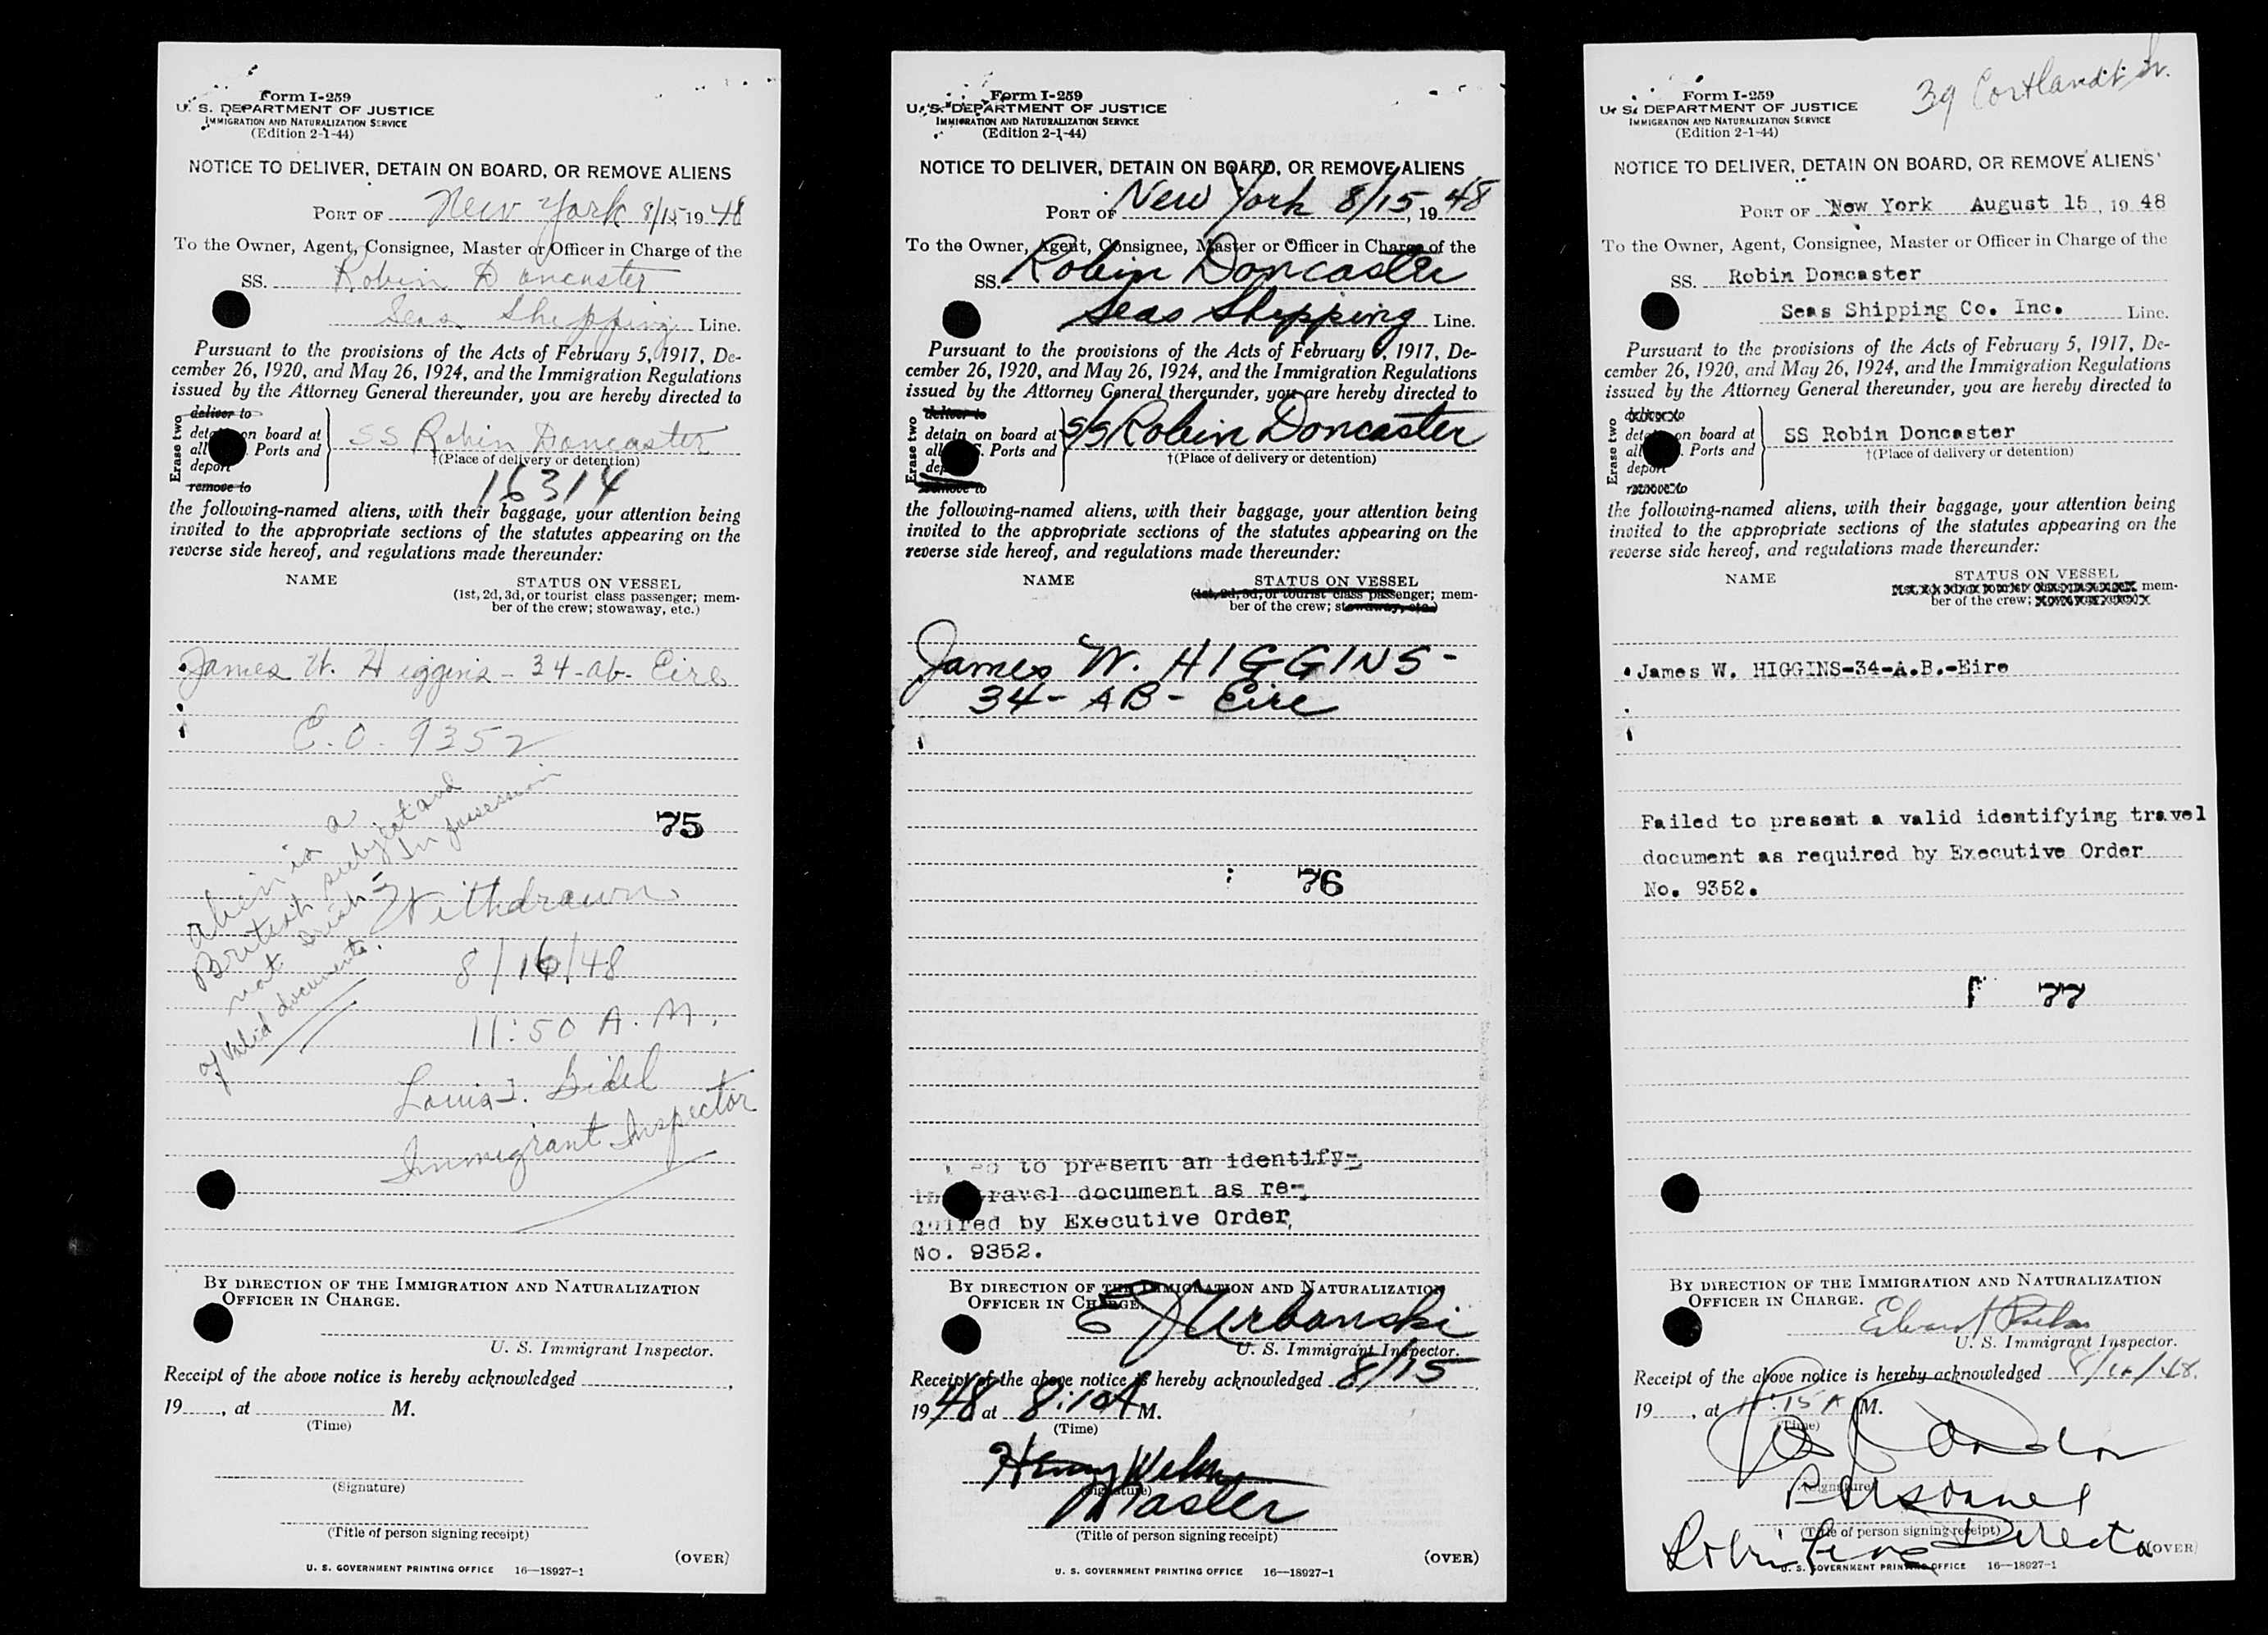 Form I-259
U. S. DEPARTMENT OF JUSTICE
IMMIGRATION AND NATURALIZATION SERVICE
(Edition 2-1-44)
NOTICE TO DELIVER, DETAIN ON BOARD, OR REMOVE ALIENS
PORT OF New York 8/15, 1948
To the Owner, Agent, Consignee, Master or Officer in Charge of the
SS. Robin Doncaster
Seas Shipping Line.
Pursuant to the provisions of the Acts of February 5, 1917, De-
cember 26, 1920, and May 26, 1924, and the Immigration Regulations
issued by the Attorney General thereunder, you are hereby directed to
Erase two
deliver to
detain on board at
all Ports and
deport
remove to
SS Robin Doncaster
†(Place of delivery or detention)
16314
the following-named aliens, with their baggage, your attention being
invited to the appropriate sections of the statutes appearing on the
reverse side hereof, and regulations made thereunder:
NAME STATUS ON VESSEL
(1st, 2d, 3d, or tourist class passenger; mem-
ber of the crew; stowaway, etc.)
James W. Higgins - 34 - ab - Eire
E.O. 9352
75
alien is a
British subject and
not Irish - In possession
of valid documents.
Withdrawn
8/16/48
11:50 A.M.
Louis I. Gidel
Immigrant Inspector
BY DIRECTION OF THE IMMIGRATION AND NATURALIZATION
OFFICER IN CHARGE.
U. S. Immigrant Inspector.
Receipt of the above notice is hereby acknowledged
19 , at M.
(Time)
(Signature)
(Title of person signing receipt)
(OVER)
U. S. GOVERNMENT PRINTING OFFICE 16—18927-1
Form I-259
U. S. DEPARTMENT OF JUSTICE
IMMIGRATION AND NATURALIZATION SERVICE
(Edition 2-1-44)
NOTICE TO DELIVER, DETAIN ON BOARD, OR REMOVE ALIENS
PORT OF New York 8/15, 1948
To the Owner, Agent, Consignee, Master or Officer in Charge of the
SS. Robin Doncaster
Seas Shipping Line.
Pursuant to the provisions of the Acts of February 5, 1917, De-
cember 26, 1920, and May 26, 1924, and the Immigration Regulations
issued by the Attorney General thereunder, you are hereby directed to
Erase two
deliver to
detain on board at
all Ports and
remove to
SS Robin Doncaster
†(Place of delivery or detention)
the following-named aliens, with their baggage, your attention being
invited to the appropriate sections of the statutes appearing on the
reverse side hereof, and regulations made thereunder:
NAME STATUS ON VESSEL
(1st, 2d, 3d, or tourist class passenger; mem-
ber of the crew; stowaway, etc.)
James W. HIGGINS -
34 - AB - Eire
76
to present an identify-
travel document as re-
quired by Executive Order,
No. 9352.
BY DIRECTION OF THE IMMIGRATION AND NATURALIZATION
OFFICER IN CHARGE.
E J Urbanski
U. S. Immigrant Inspector.
Receipt of the above notice is hereby acknowledged 8/15
1948 at 8:10 A M.
(Time)
Henry
(Signature)
Master
(Title of person signing receipt)
(OVER)
U. S. GOVERNMENT PRINTING OFFICE 16—18927-1
39 Cortlandt St.
Form I-259
U. S. DEPARTMENT OF JUSTICE
IMMIGRATION AND NATURALIZATION SERVICE
(Edition 2-1-44)
NOTICE TO DELIVER, DETAIN ON BOARD, OR REMOVE ALIENS
PORT OF New York August 15, 1948
To the Owner, Agent, Consignee, Master or Officer in Charge of the
SS. Robin Doncaster
Seas Shipping Co. Inc. Line.
Pursuant to the provisions of the Acts of February 5, 1917, De-
cember 26, 1920, and May 26, 1924, and the Immigration Regulations
issued by the Attorney General thereunder, you are hereby directed to
Erase two
detain on board at
all Ports and
deport
SS Robin Doncaster
†(Place of delivery or detention)
the following-named aliens, with their baggage, your attention being
invited to the appropriate sections of the statutes appearing on the
reverse side hereof, and regulations made thereunder:
NAME STATUS ON VESSEL
mem-
ber of the crew;
James W. HIGGINS-34-A.B.-Eire
Failed to present a valid identifying travel
document as required by Executive Order
No. 9352.
77
BY DIRECTION OF THE IMMIGRATION AND NATURALIZATION
OFFICER IN CHARGE.
Edward
U. S. Immigrant Inspector.
Receipt of the above notice is hereby acknowledged 8/16/48.
19 , at 11:15 A M.
(Time)
(Signature)
Personnel
(Title of person signing receipt)
Robin Line Director
(OVER)
U. S. GOVERNMENT PRINTING OFFICE 16—18927-1